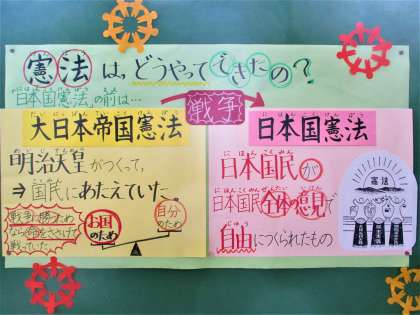 憲法は、どうやってできたの?
「日本国憲法」の前は…
戦争
大日本帝国憲法
明治天皇がつくって、
⇒国民にあたえていた
戦争に勝つため
なら命をささげて
戦っていた
お国
のため
自分
のため
日本国憲法
日本国民が
日本国民全体の意見で
自由につくられたもの
憲法